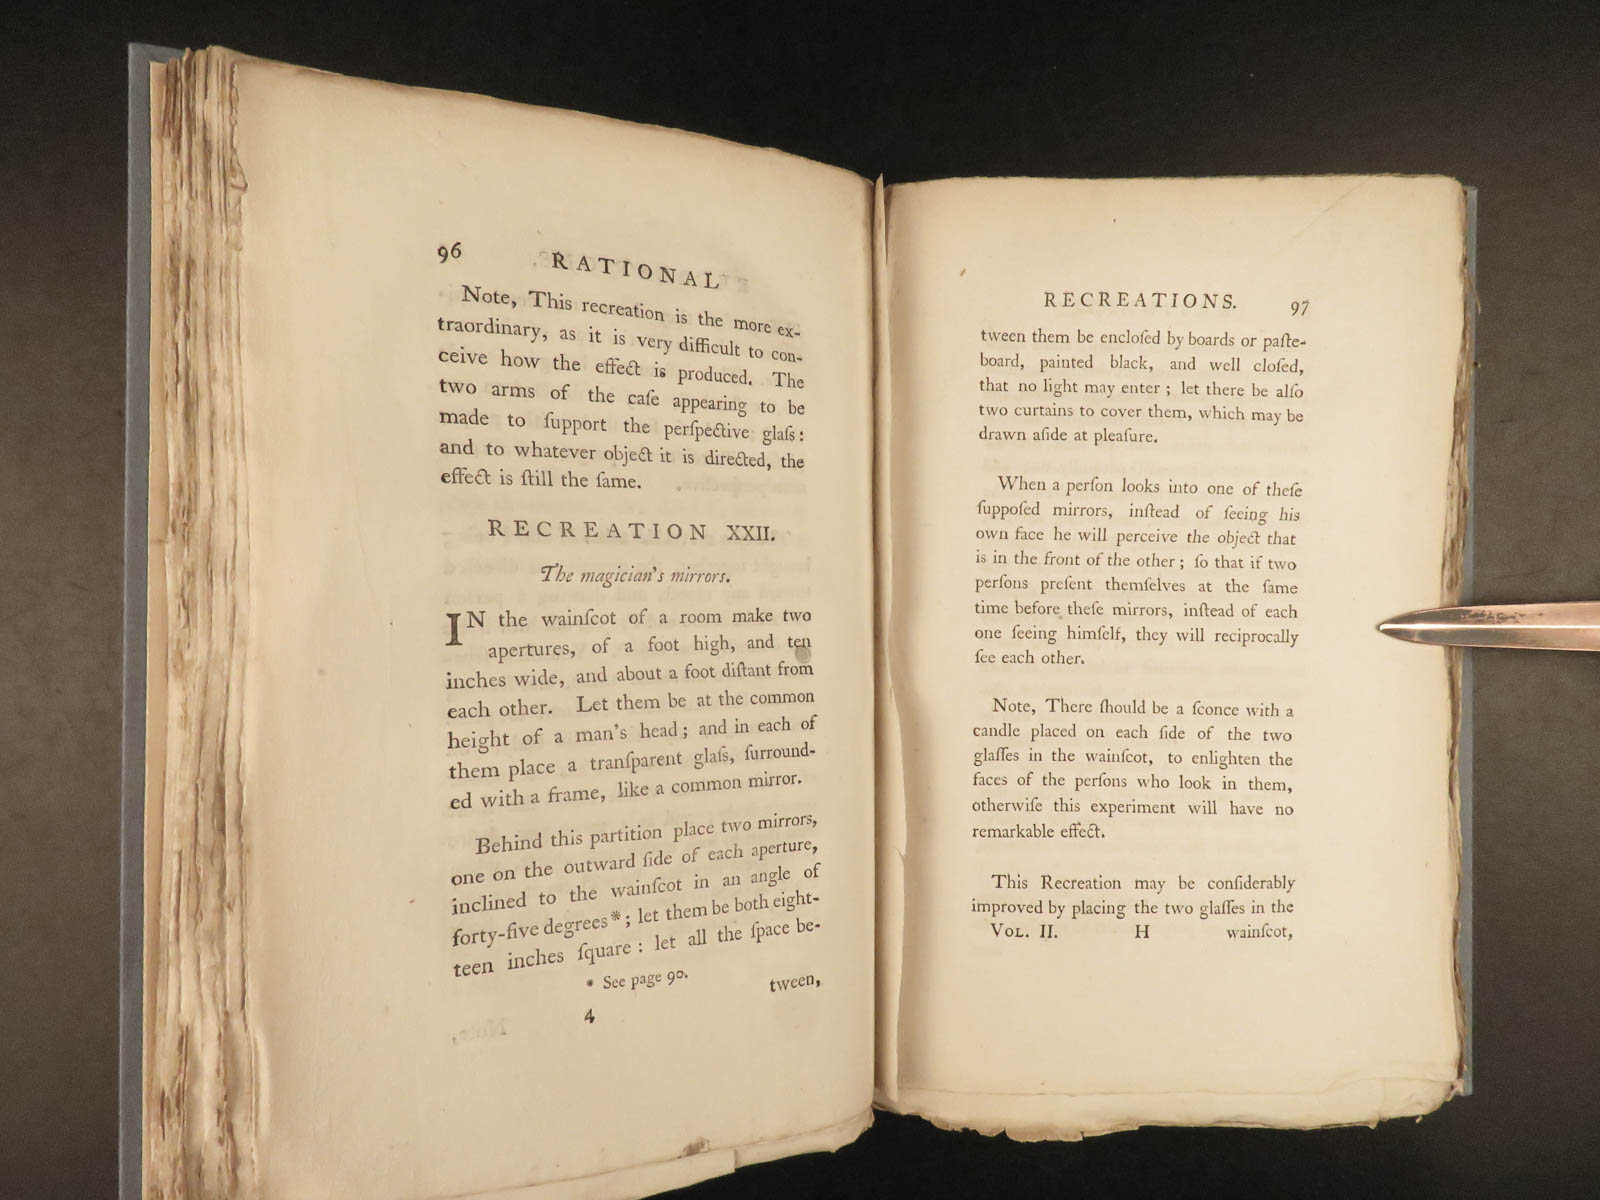 96 RATIONAL
Note, This recreation is the more ex-
traordinary, as it is very difficult to con-
ceive how the effect is produced. The
two arms of the caſe appearing to be
made to ſupport the perſpective glaſs:
and to whatever object it is directed, the
effect is ſtill the ſame.
RECREATION XXII.
The magician's mirrors.
IN the wainſcot of a room make two
apertures, of a foot high, and ten
inches wide, and about a foot diſtant from
each other. Let them be at the common
height of a man's head; and in each of
them place a tranſparent glaſs, ſurround-
ed with a frame, like a common mirror.
Behind this partition place two mirrors,
one on the outward ſide of each aperture,
inclined to the wainſcot in an angle of
forty-five degrees*; let them be both eight-
teen inches ſquare: let all the ſpace be-
* See page 90.
tween,
4
RECREATIONS. 97
tween them be encloſed by boards or paſte-
board, painted black, and well cloſed,
that no light may enter; let there be alſo
two curtains to cover them, which may be
drawn aſide at pleaſure.
When a perſon looks into one of theſe
ſuppoſed mirrors, inſtead of ſeeing his
own face he will perceive the object that
is in the front of the other; ſo that if two
perſons preſent themſelves at the ſame
time before theſe mirrors, inſtead of each
one ſeeing himſelf, they will reciprocally
ſee each other.
Note, There ſhould be a ſconce with a
candle placed on each ſide of the two
glaſſes in the wainſcot, to enlighten the
faces of the perſons who look in them,
otherwiſe this experiment will have no
remarkable effect.
This Recreation may be conſiderably
improved by placing the two glaſſes in the
VOL. II. H wainſcot,